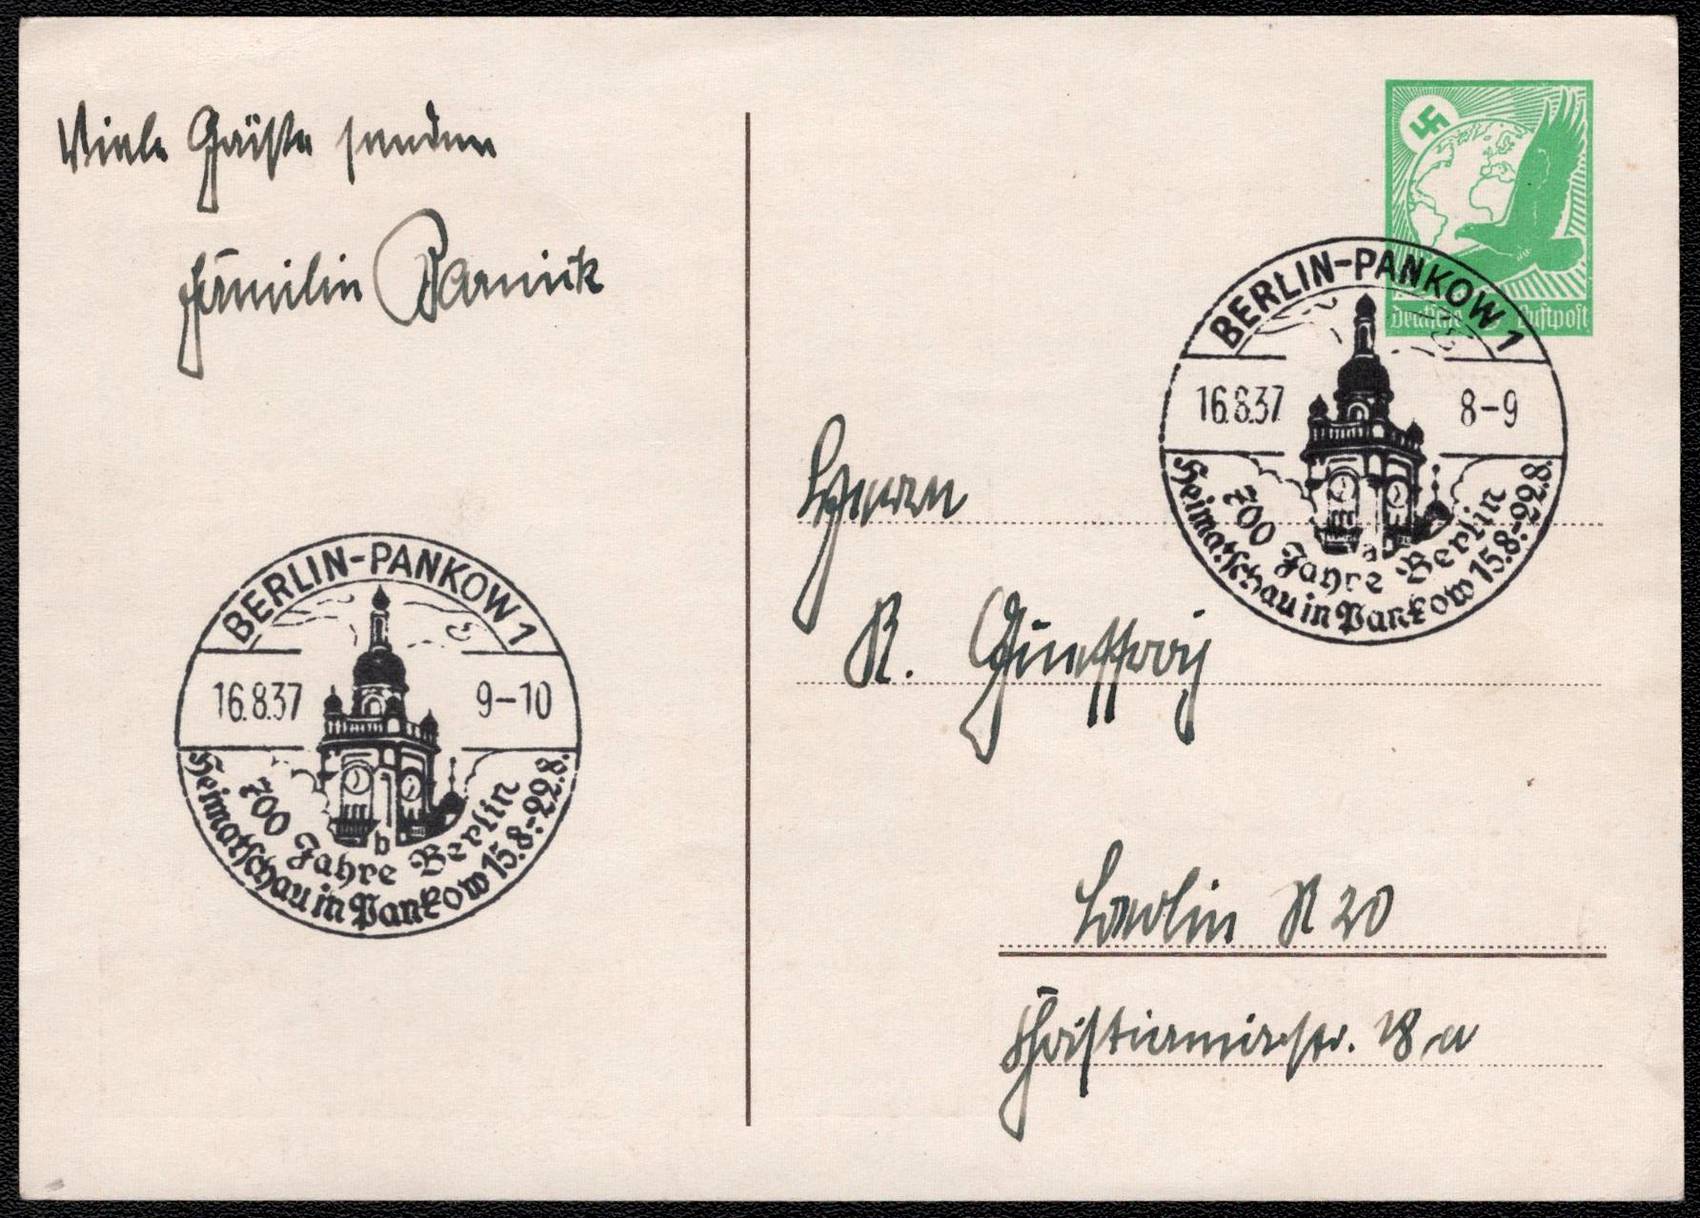 Viele Grüße senden
Familie Barnick
Deutsche Luftpost
BERLIN-PANKOW 1
16.8.37 8-9
700 Jahre Berlin
Heimatschau in Pankow 15.8.-22.8.
a
Herrn
R.
Berlin N 20
Christianiastr. 18 a
BERLIN-PANKOW 1
16.8.37 9-10
700 Jahre Berlin
Heimatschau in Pankow 15.8.-22.8.
b